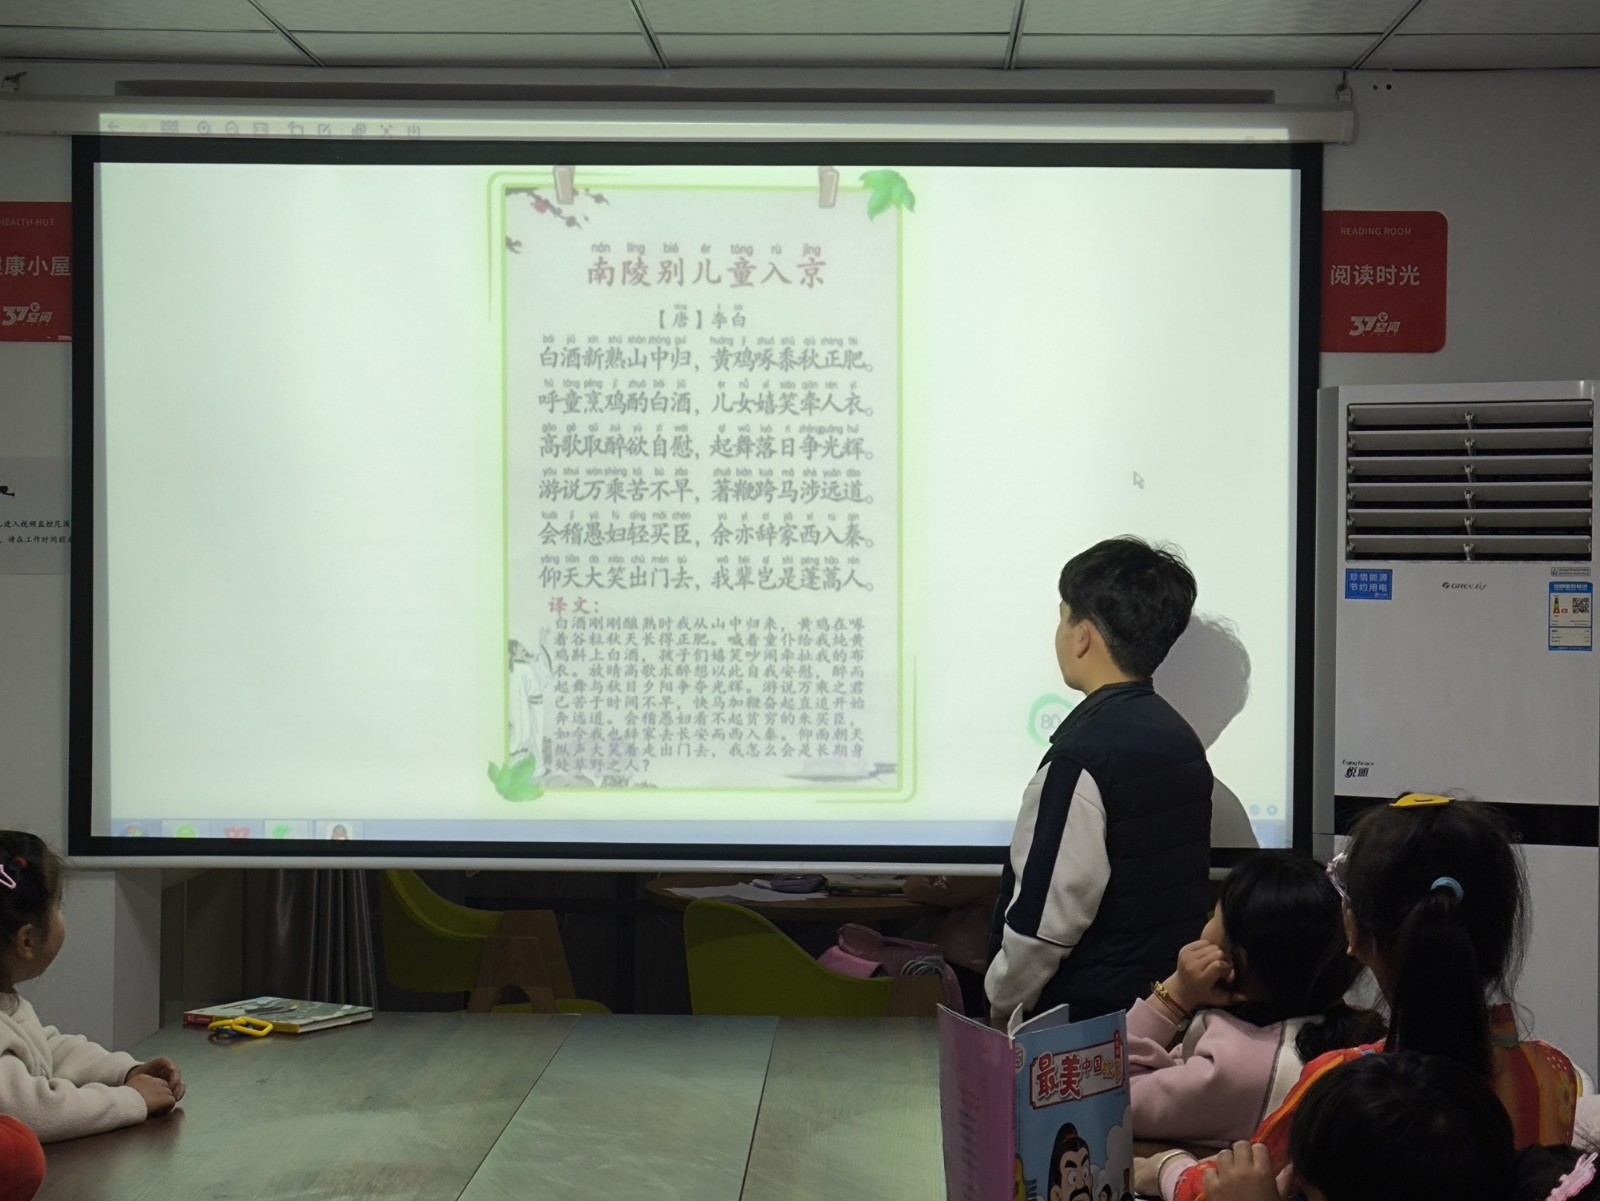 HEALTH HUT
康小屋
37℃空间
READING ROOM
阅读时光
37℃空间
nán líng bié ér tóng rù jīng
南陵别儿童入京
【唐】李白
bái jiǔ xīn shú shān zhōng guī huáng jī zhuó shǔ qiū zhèng féi
白酒新熟山中归，黄鸡啄黍秋正肥。
hū tóng pēng jī zhuó bái jiǔ ér nǚ xī xiào qiān rén yī
呼童烹鸡酌白酒，儿女嬉笑牵人衣。
gāo gē qǔ zuì yù zì wèi qǐ wǔ luò rì zhēng guāng huī
高歌取醉欲自慰，起舞落日争光辉。
yóu shuì wàn shèng kǔ bù zǎo zhuó biān kuà mǎ shè yuǎn dào
游说万乘苦不早，著鞭跨马涉远道。
kuài jī yú fù qīng mǎi chén yú yì cí jiā xī rù qín
会稽愚妇轻买臣，余亦辞家西入秦。
yǎng tiān dà xiào chū mén qù wǒ bèi qǐ shì péng hāo rén
仰天大笑出门去，我辈岂是蓬蒿人。
译文：
白酒刚刚酿熟时我从山中归来，黄鸡在啄
着谷粒秋天长得正肥。喊着童仆给我炖黄
鸡斟上白酒，孩子们嬉笑吵闹牵扯我的布
衣。放晴高歌求醉想以此自我安慰，醉而
起舞与秋日夕阳争夺光辉。游说万乘之君
已苦于时间不早，快马加鞭奋起直追开始
奔远道。会稽愚妇看不起贫穷的朱买臣，
如今我也辞家去长安而西入秦。仰面朝天
纵声大笑着走出门去，我怎么会是长期身
处草野之人？
80
珍惜能源
节约用电
GREE
悦雅
最美中国